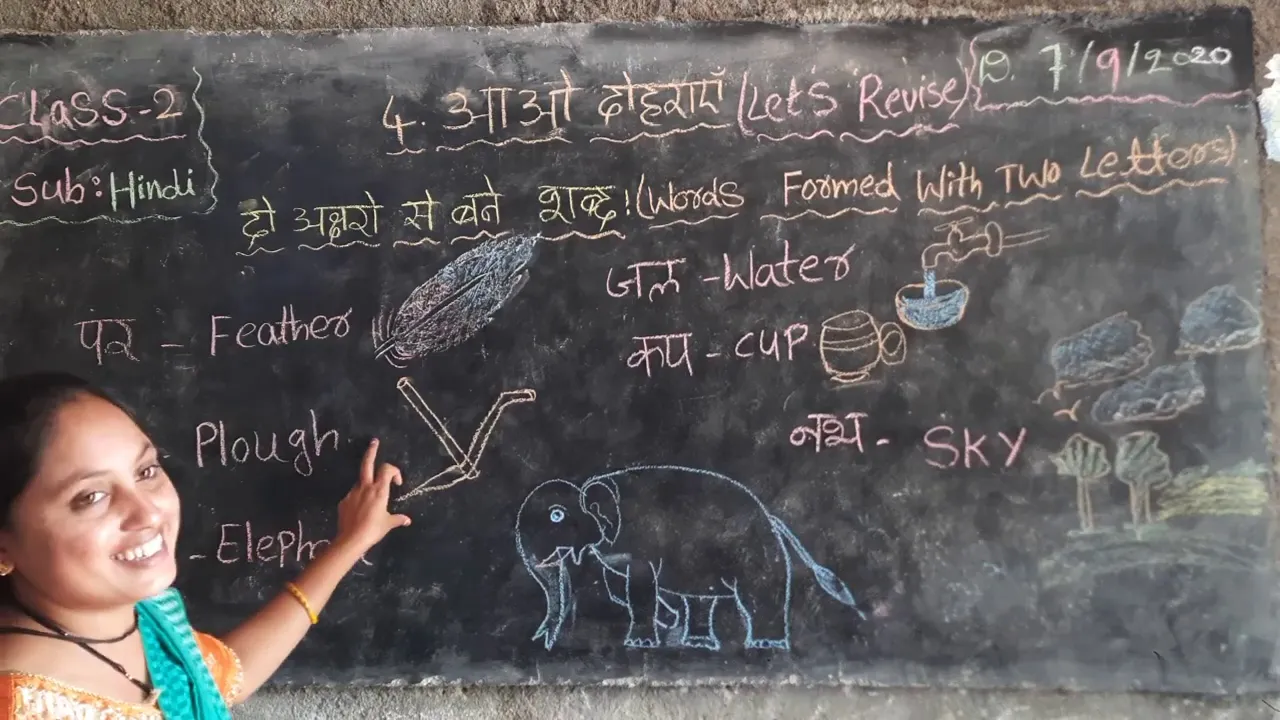 CLASS-2
Sub: Hindi
4. आओ दोहराएँ (Let's Revise)
दि. 7/9/2020
दो अक्षरो से बने शब्द! (Words Formed With Two Letters)
पर - Feather
जल - Water
कप - CUP
Plough
नभ - SKY
- Eleph